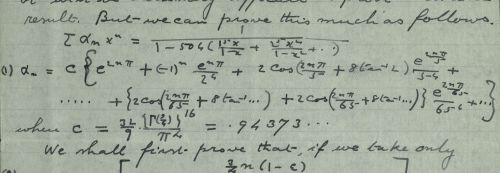 result. But we can prove this much as follows.
Σ αₙ xⁿ = 1 / 1 − 504 ( 1⁵x/1−x + 2⁵x²/1−x² + ··)
αₙ = C { e^{2nπ} + (−1)ⁿ e^{nπ}/2⁴ + 2 cos(2nπ/5 + 8 tan⁻¹2) e^{2nπ/5}/5⁴ +
...... + {2 cos(2nπ/65 + 8 tan⁻¹...) + 2 cos(2nπ/65 + 8 tan⁻¹...)} e^{2nπ/65}/65⁴ + ...}
when C = = .94373...
We shall first prove that, if we take only
n(1−ε)